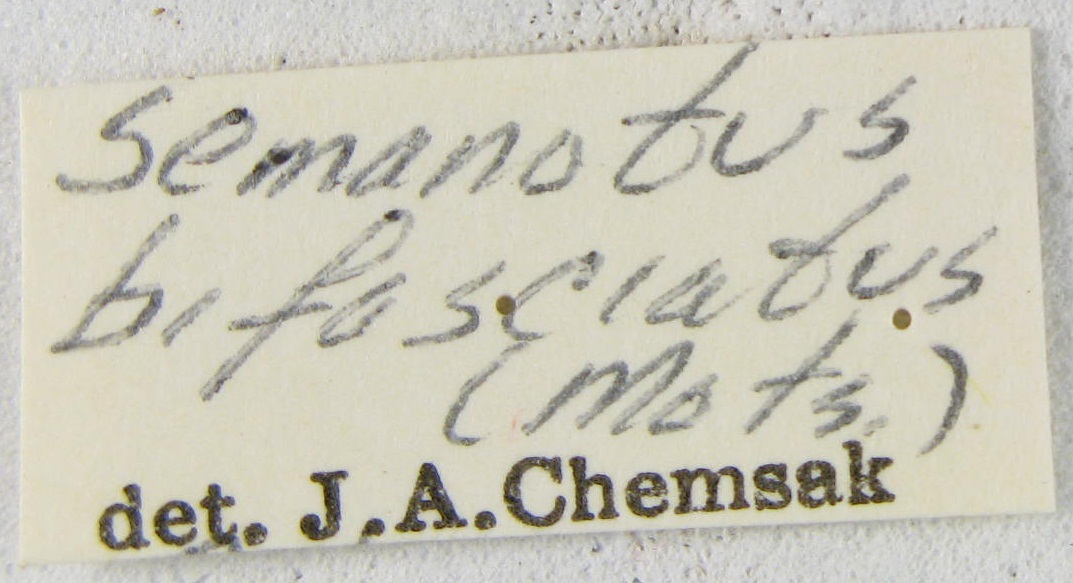 Semanotus
bifasciatus
(Mots.)
det. J.A.Chemsak